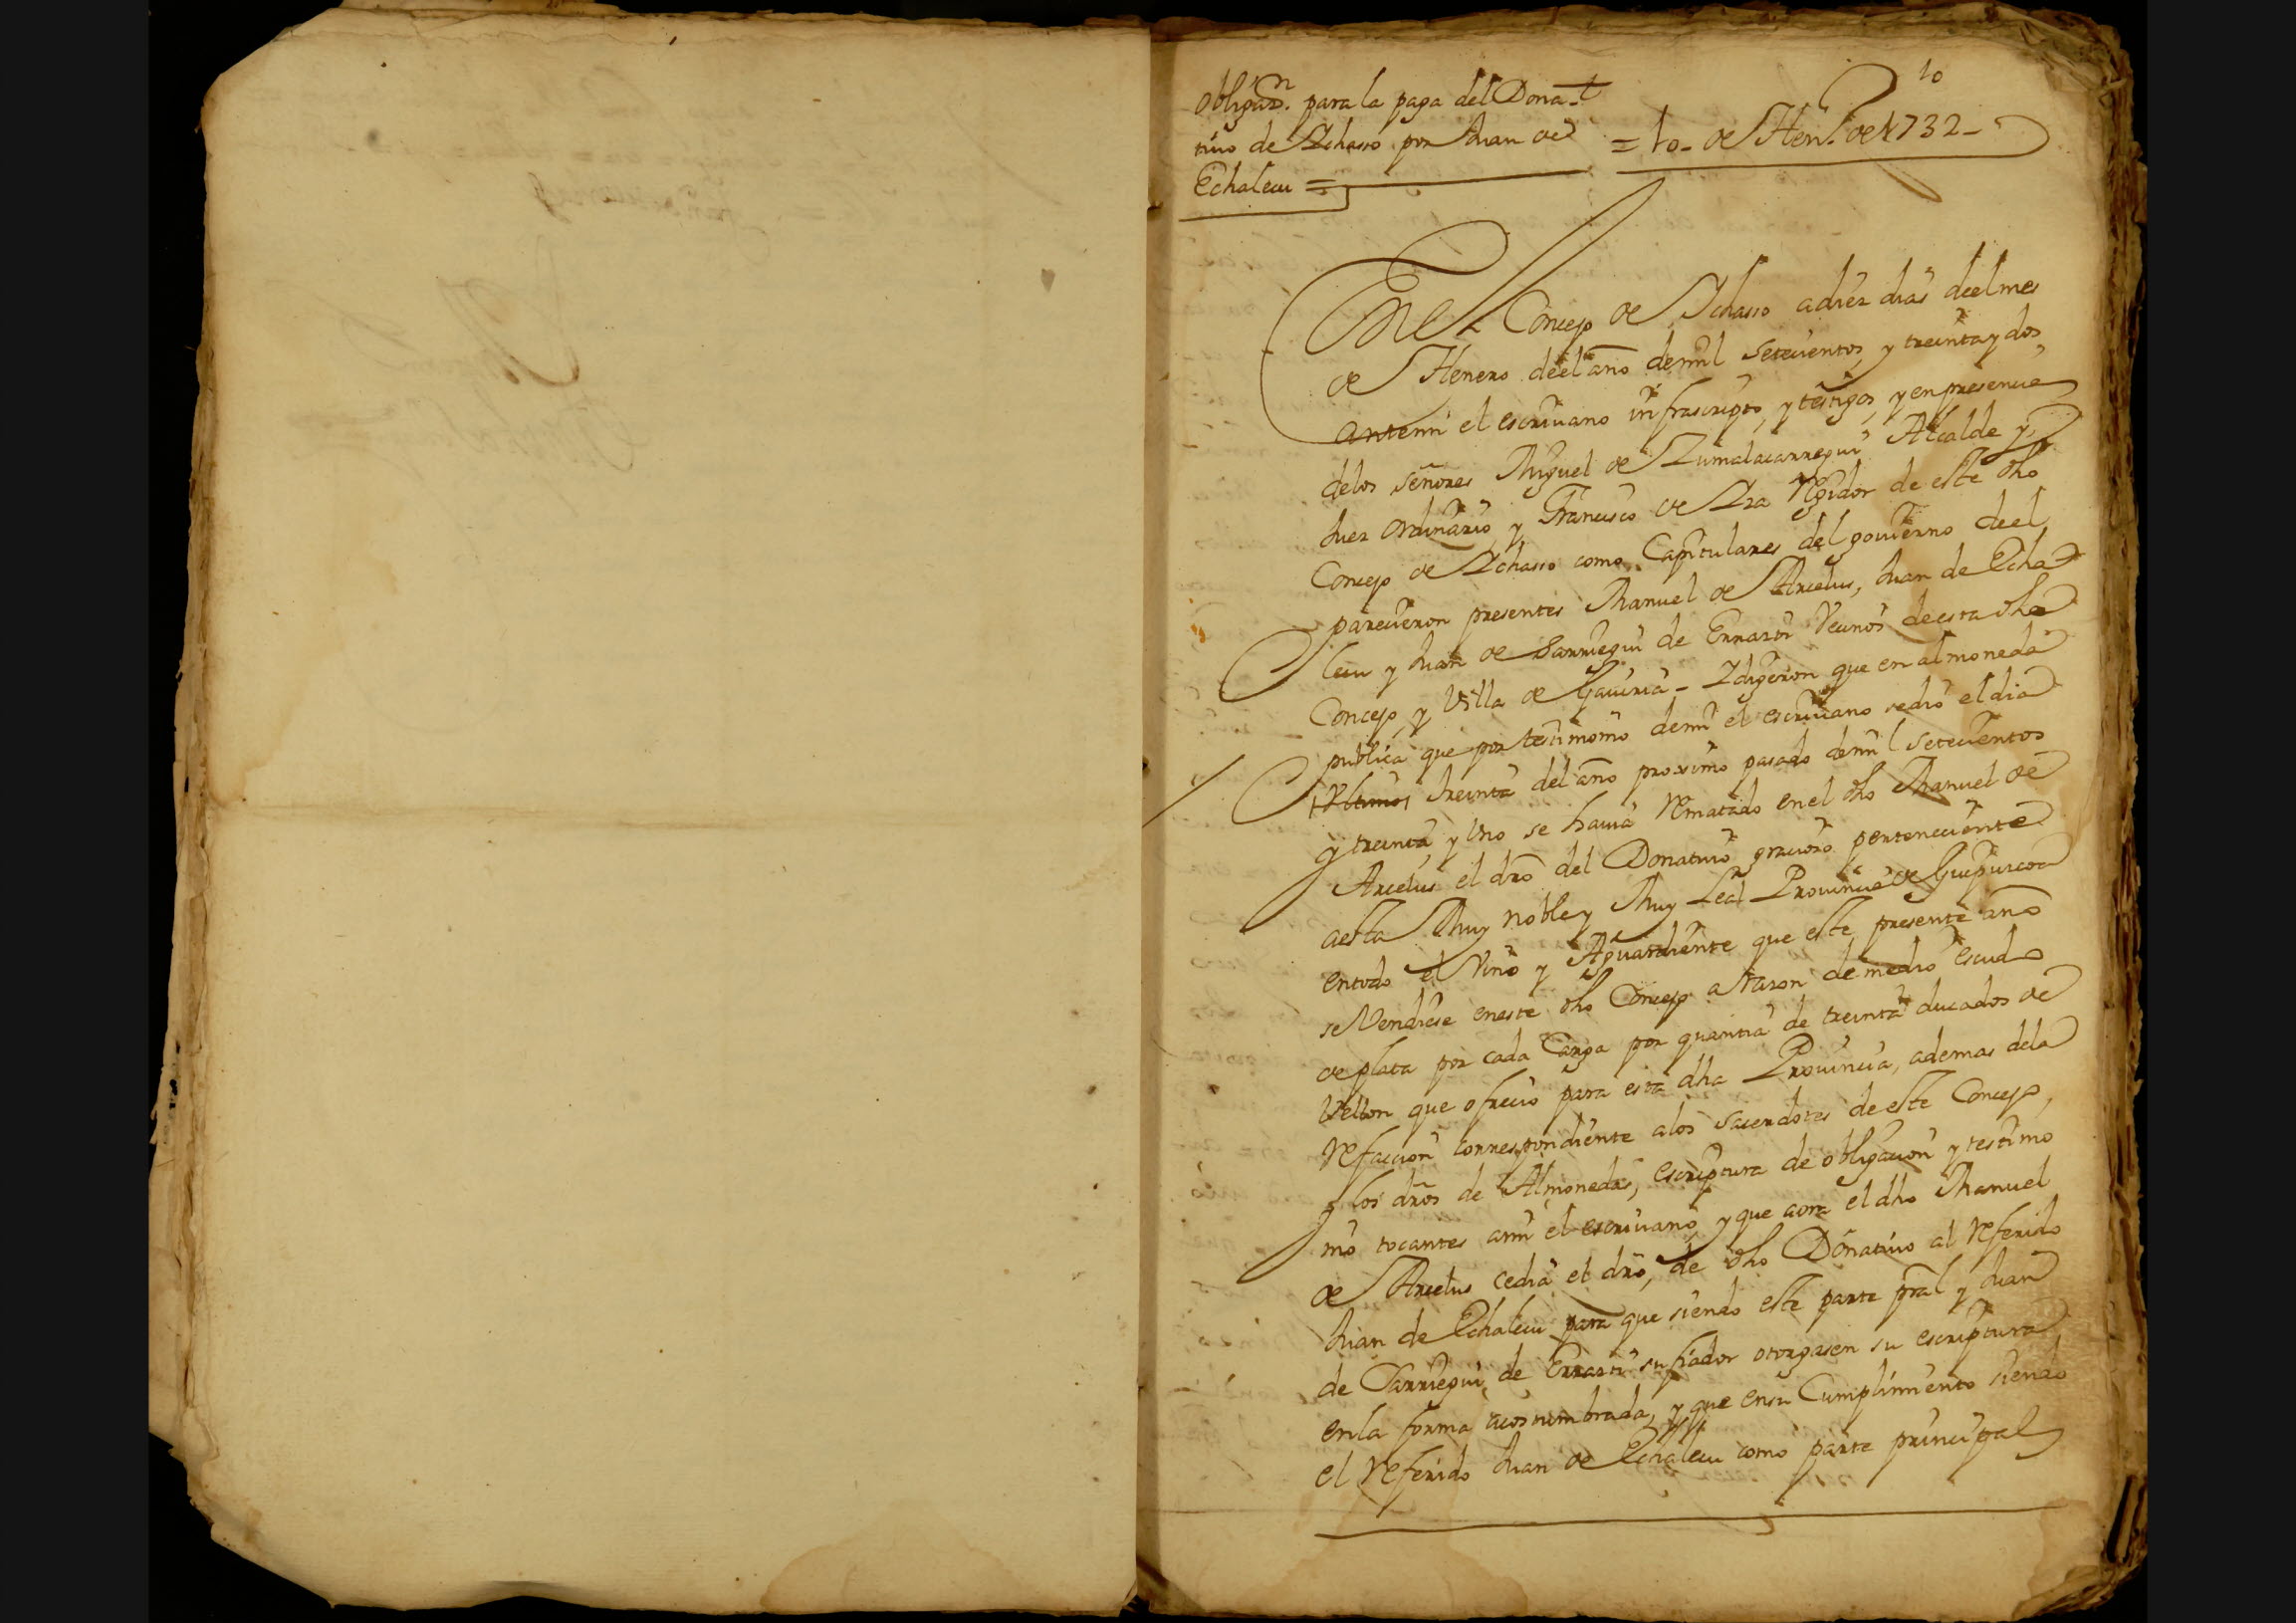 10
Obligaz.n para la paga del Dona-
tivo de Ychasso por Juan de
Echalecu =
= 10- de Hen.º de 1732-
En el Concejo de Ychasso a diez dias deel mes
de Henero deel año de mil setecientos, y treinta y dos,
ante mi el escrivano infrascripto, y testigos, y en presencia
de los señores Miguel de Zumalacarregui Alcalde y
Juez ordinario, y Francisco de Aza Regidor de este dho
Concejo de Ychasso como Capitulares del govierno deel
parecieron presentes Manuel de Arcelus, Juan de Echa-
lecu y Juan de Sarriegui de Errazti Vecinos de esta dha
Concejo, y Villa de Gaviria - Y digeron que en almoneda
publica que por testimonio de mi el escrivano se dio el dia
treinta del año proximo pasado de mil setecientos
y treinta y Uno se havia Rematado en el dho Manuel de
Arcelus el dró del Donativo gracioso perteneciente
a esta Muy noble y Muy Leal Provincia de Guipuzcoa
en todo el Vino y Aguardiente que este presente año
se Vendiese en este dho Concejo a Razon de medio escudo
de plata por cada Carga por quantia de treinta ducados de
Vellon que ofrecio para esta dha Provincia, ademas de la
Refaccion correspondiente a los sacerdotes de este Concejo,
y los drós de Almonedas, escriptura de obligacion y testimo
nio tocantes a mi el escrivano, y que aora el dho Manuel
de Arcelus cedia el dró, de dho Donativo al Referido
Juan de Echalecu para que siendo este parte pral y Juan
de Sarriegui de Errazti su fiador otorgasen su escriptura
en la forma acostumbrada, y que en su Cumplimiento siendo
el Referido Juan de Echalecu como parte principal